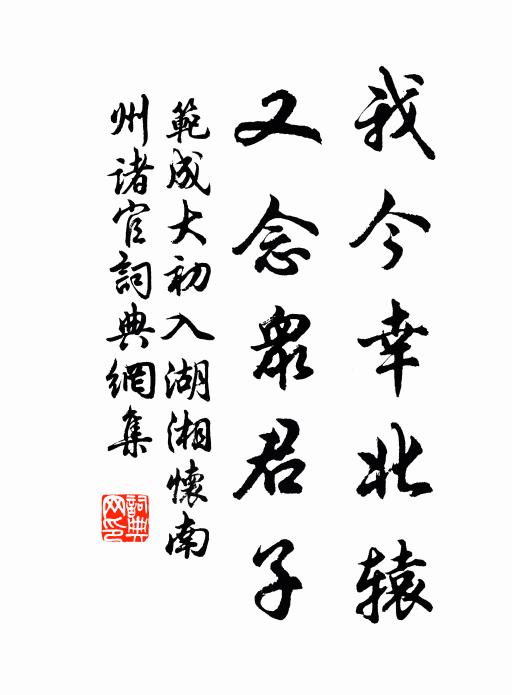 我今幸北辕
又念衆君子
範成大初入湖湘懷南
州诸官詞典網集
詞典
网印